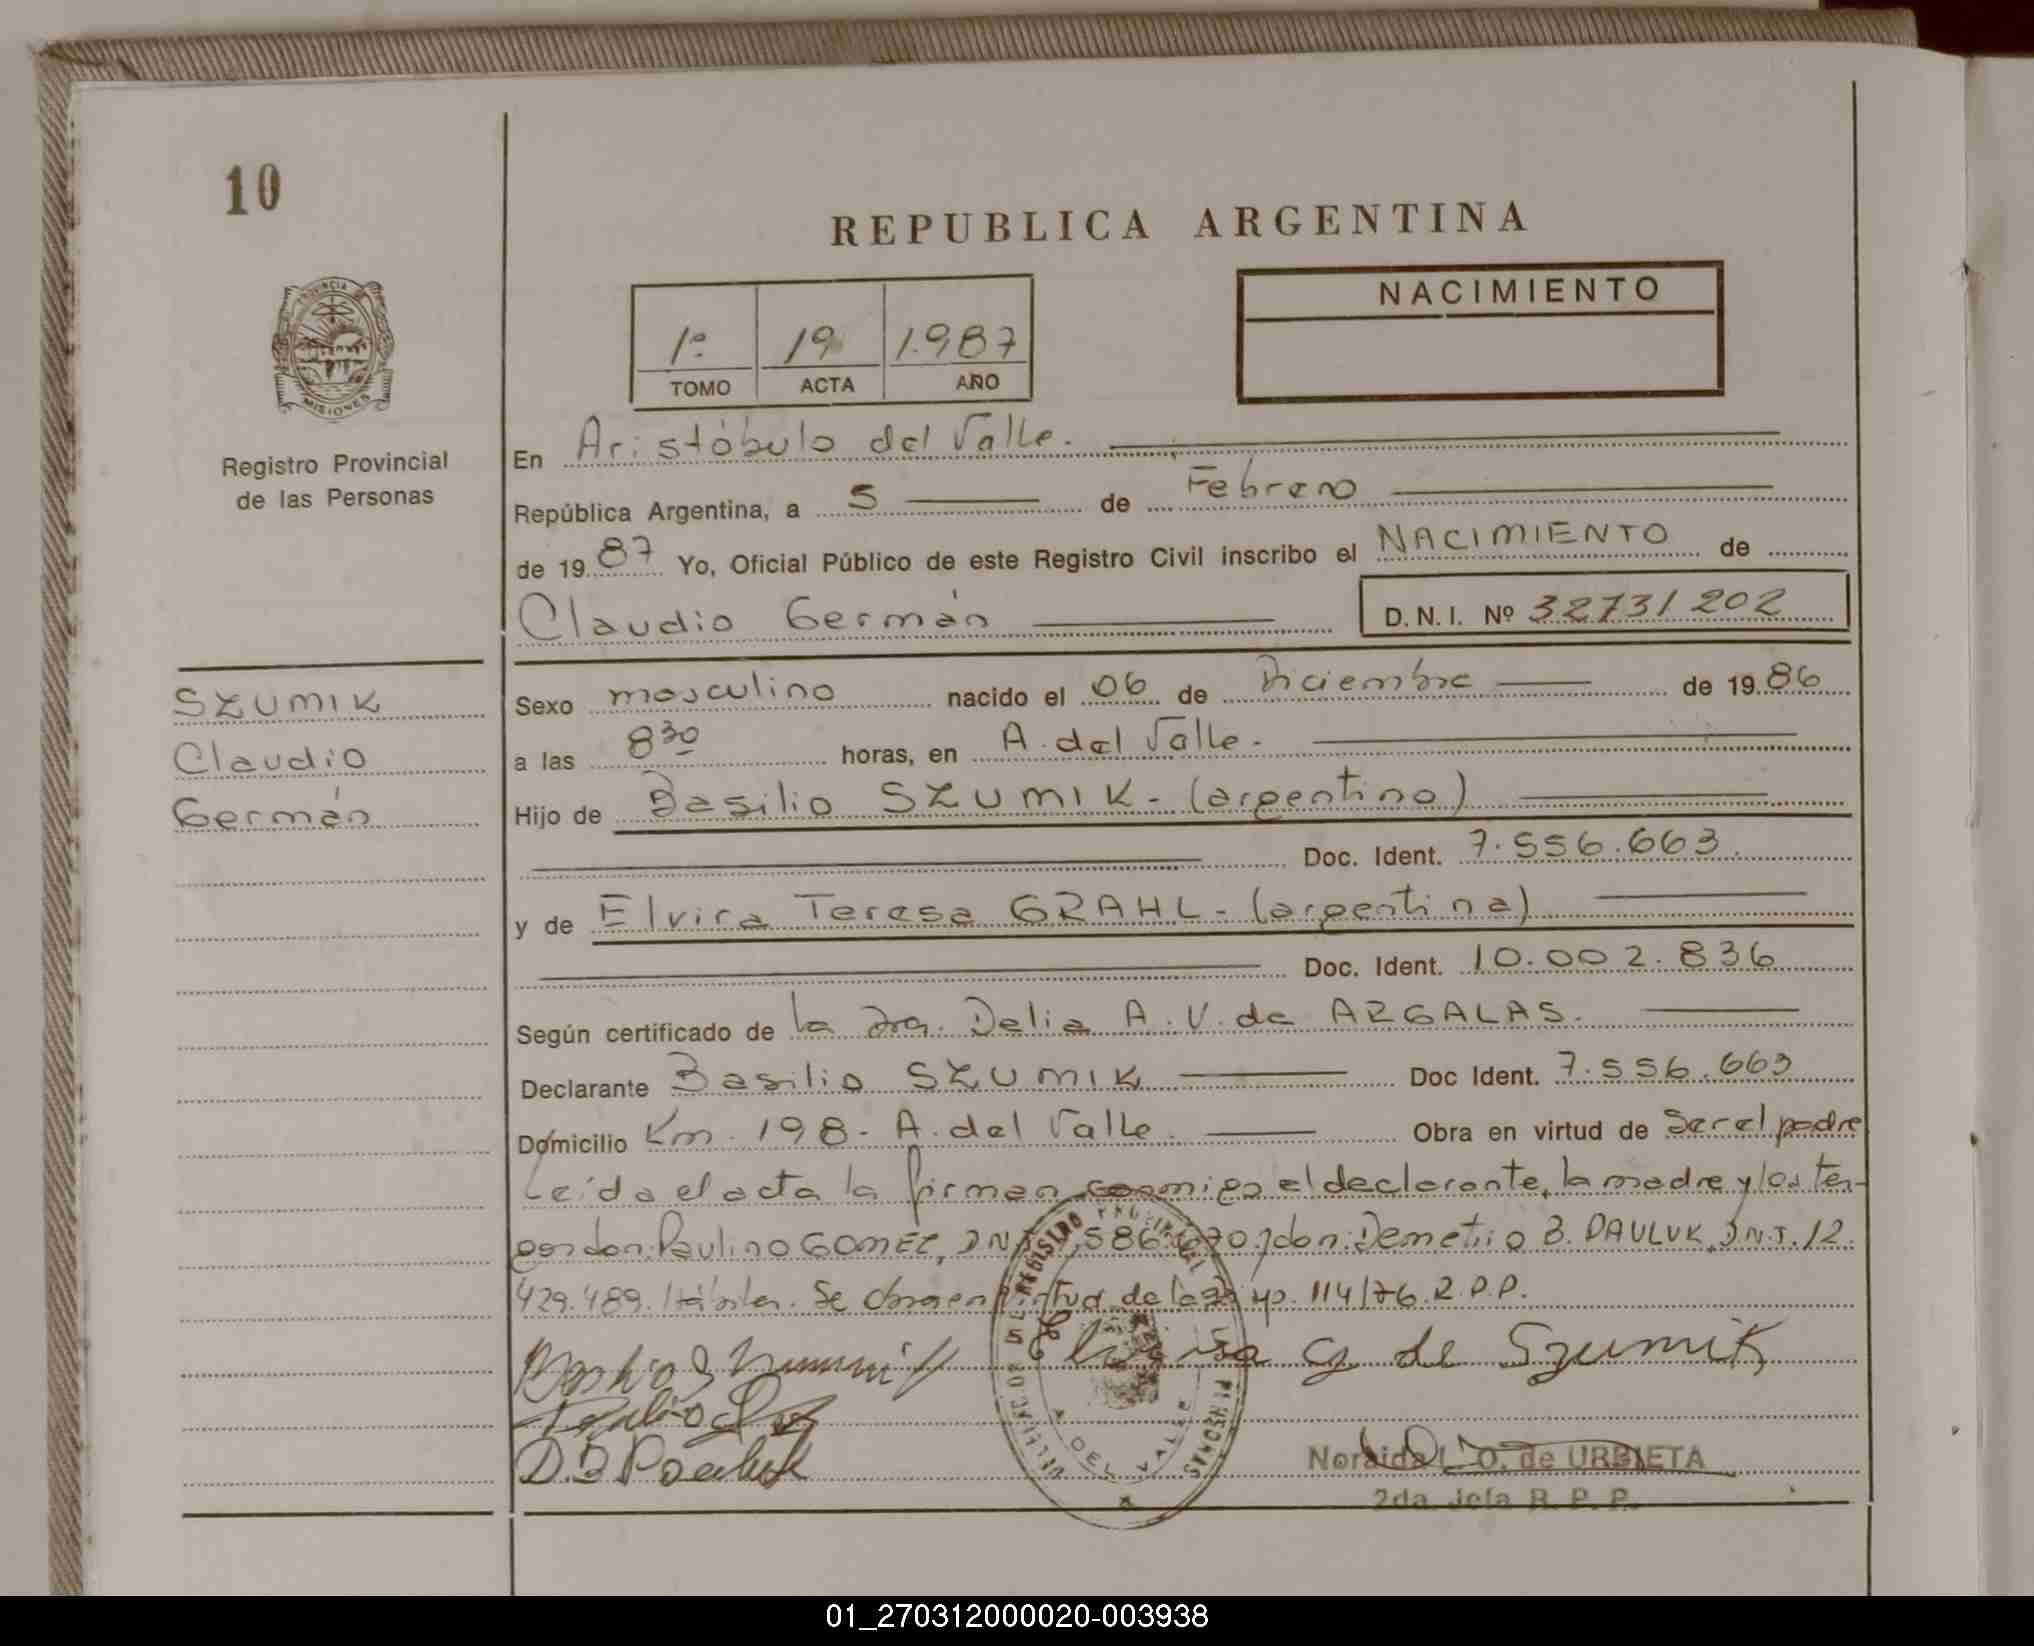 10
REPUBLICA ARGENTINA
NACIMIENTO
1º 19 1.987
TOMO ACTA AÑO
PROVINCIA DE
MISIONES
Registro Provincial
de las Personas
En Aristóbulo del Valle.
República Argentina, a 5 de Febrero
de 1987 Yo, Oficial Público de este Registro Civil inscribo el NACIMIENTO de
Claudio Germán D. N. I. Nº 32731202
SZUMIK
Claudio
Germán
Sexo masculino nacido el 06 de Diciembre de 1986
a las 8 30 horas, en A. del Valle.
Hijo de Basilio SZUMIK - (argentino)
Doc. Ident. 7.556.663.
y de Elvira Teresa GRAHL - (argentina)
Doc. Ident. 10.002.836
Según certificado de la Dra. Delia A. V. de ARGALAS.
Declarante Basilio SZUMIK Doc Ident. 7.556.663
Domicilio Km. 198. A. del Valle. Obra en virtud de Ser el padre
Leída el acta la firman conmigo el declarante, la madre y los tes-
don: Paulino GOMEZ, DNI 586. 70 y don: Demetrio B. PAULUK, D.N.I. 12.
429.489. Hábiles. Se obra en virtud de la 114/76. R.P.P.
Elvira G de Szumik
D.B Pauluk
DEL VALLE
Noraida L. O. de URBIETA
2da. Jefa R. P. P.
01_270312000020-003938